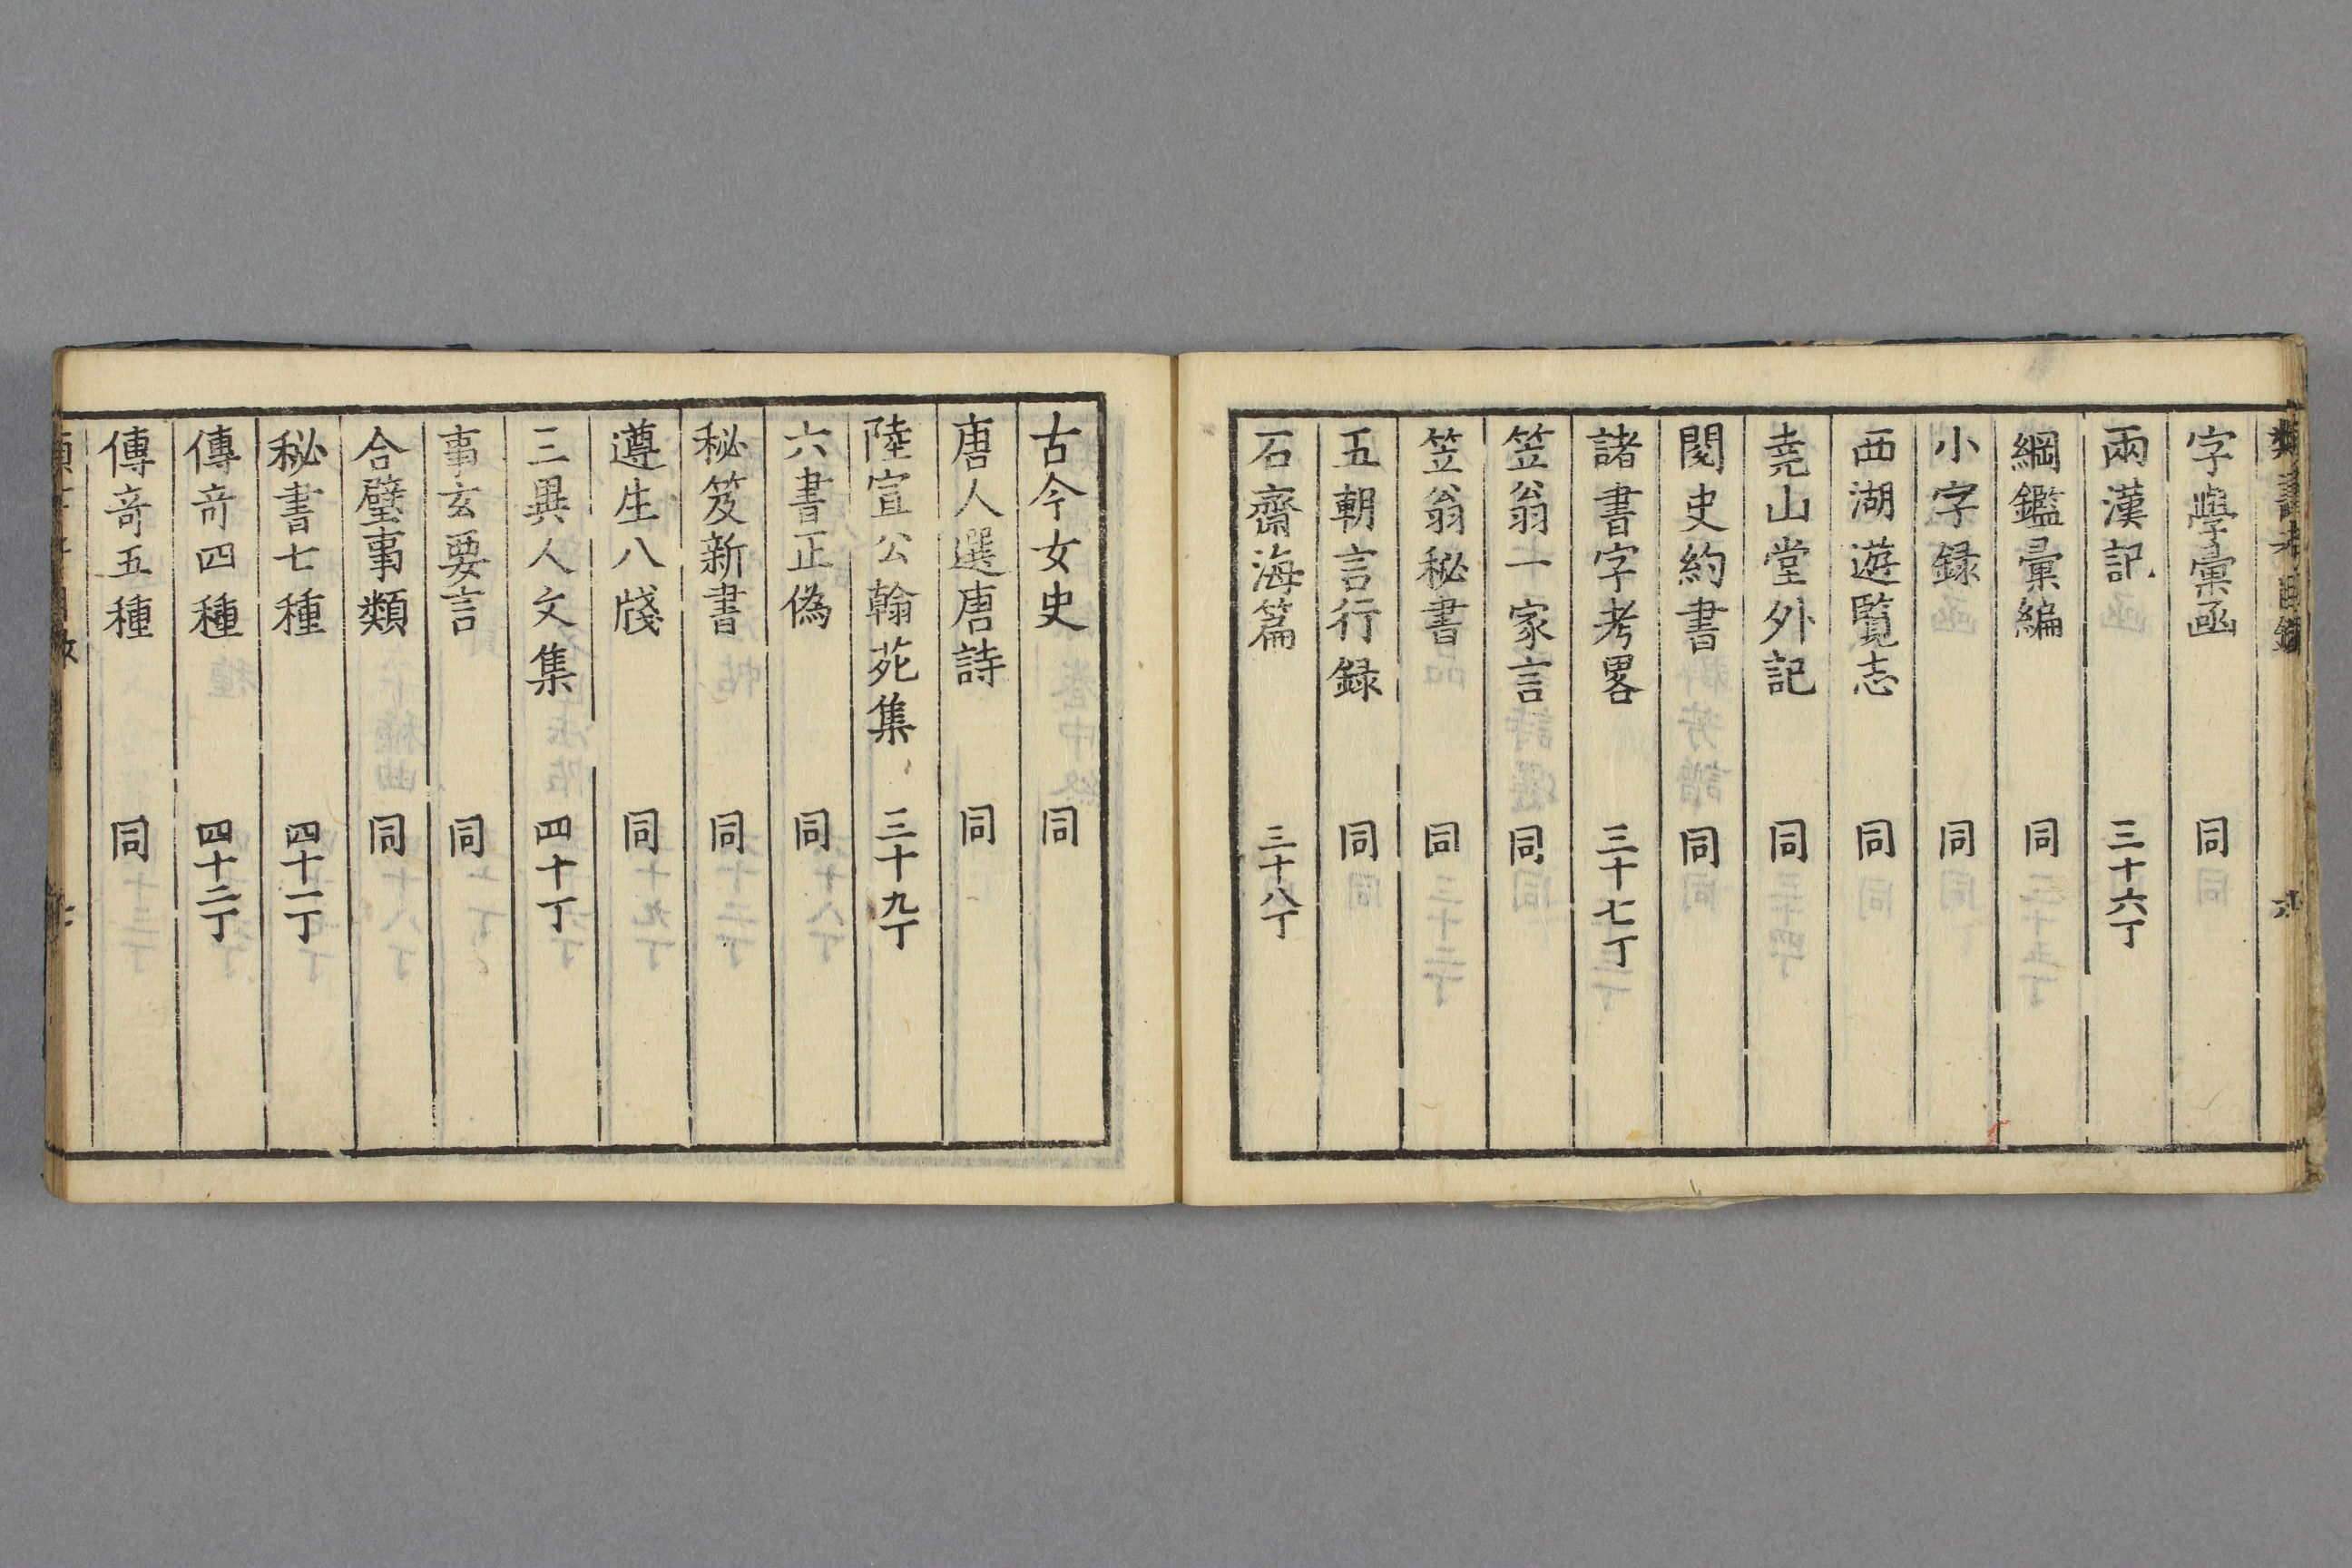 字學彙函 同
兩漢記 三十六丁
綱鑑彙編 同
小字録 同
西湖遊覧志 同
尭山堂外記 同
閱史約書 同
諸書字考畧 三十七丁
笠翁一家言 同
笠翁秘書 同
五朝言行録 同
石齋海篇 三十八丁
古今女史 同
唐人選唐詩 同
陸宣公翰苑集 三十九丁
六書正偽 同
秘笈新書 同
遵生八牋 同
三異人文集 四十丁
事玄要言 同
合璧事類 同
秘書七種 四十一丁
傳竒四種 四十二丁
傳竒五種 同